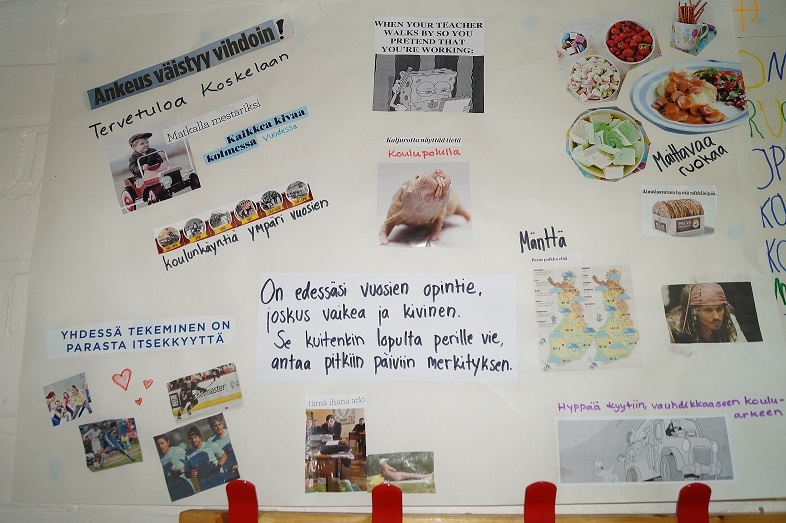 Ankeus väistyy vihdoin!
Tervetuloa Koskelaan
Matkalla mestariksi
Kaikkea kivaa
kolmessa vuodessa
koulunkäyntiä ympäri vuosien
YHDESSÄ TEKEMINEN ON
PARASTA ITSEKKYYTTÄ
WHEN YOUR TEACHER
WALKS BY SO YOU
PRETEND THAT
YOU'RE WORKING:
Kaljurotta näyttää tietä
Koulupolulla
On edessäsi vuosien opintie,
joskus vaikea ja kivinen.
Se kuitenkin lopulta perille vie,
antaa pitkiin päiviin merkityksen.
tämä ihana arki
Maittavaa
ruokaa
Ainutlaatuisen hyvää näkkileipää.
Mänttä
Paras paikka elää
Hyppää kyytiin, vauhdikkaaseen koulu-
arkeen